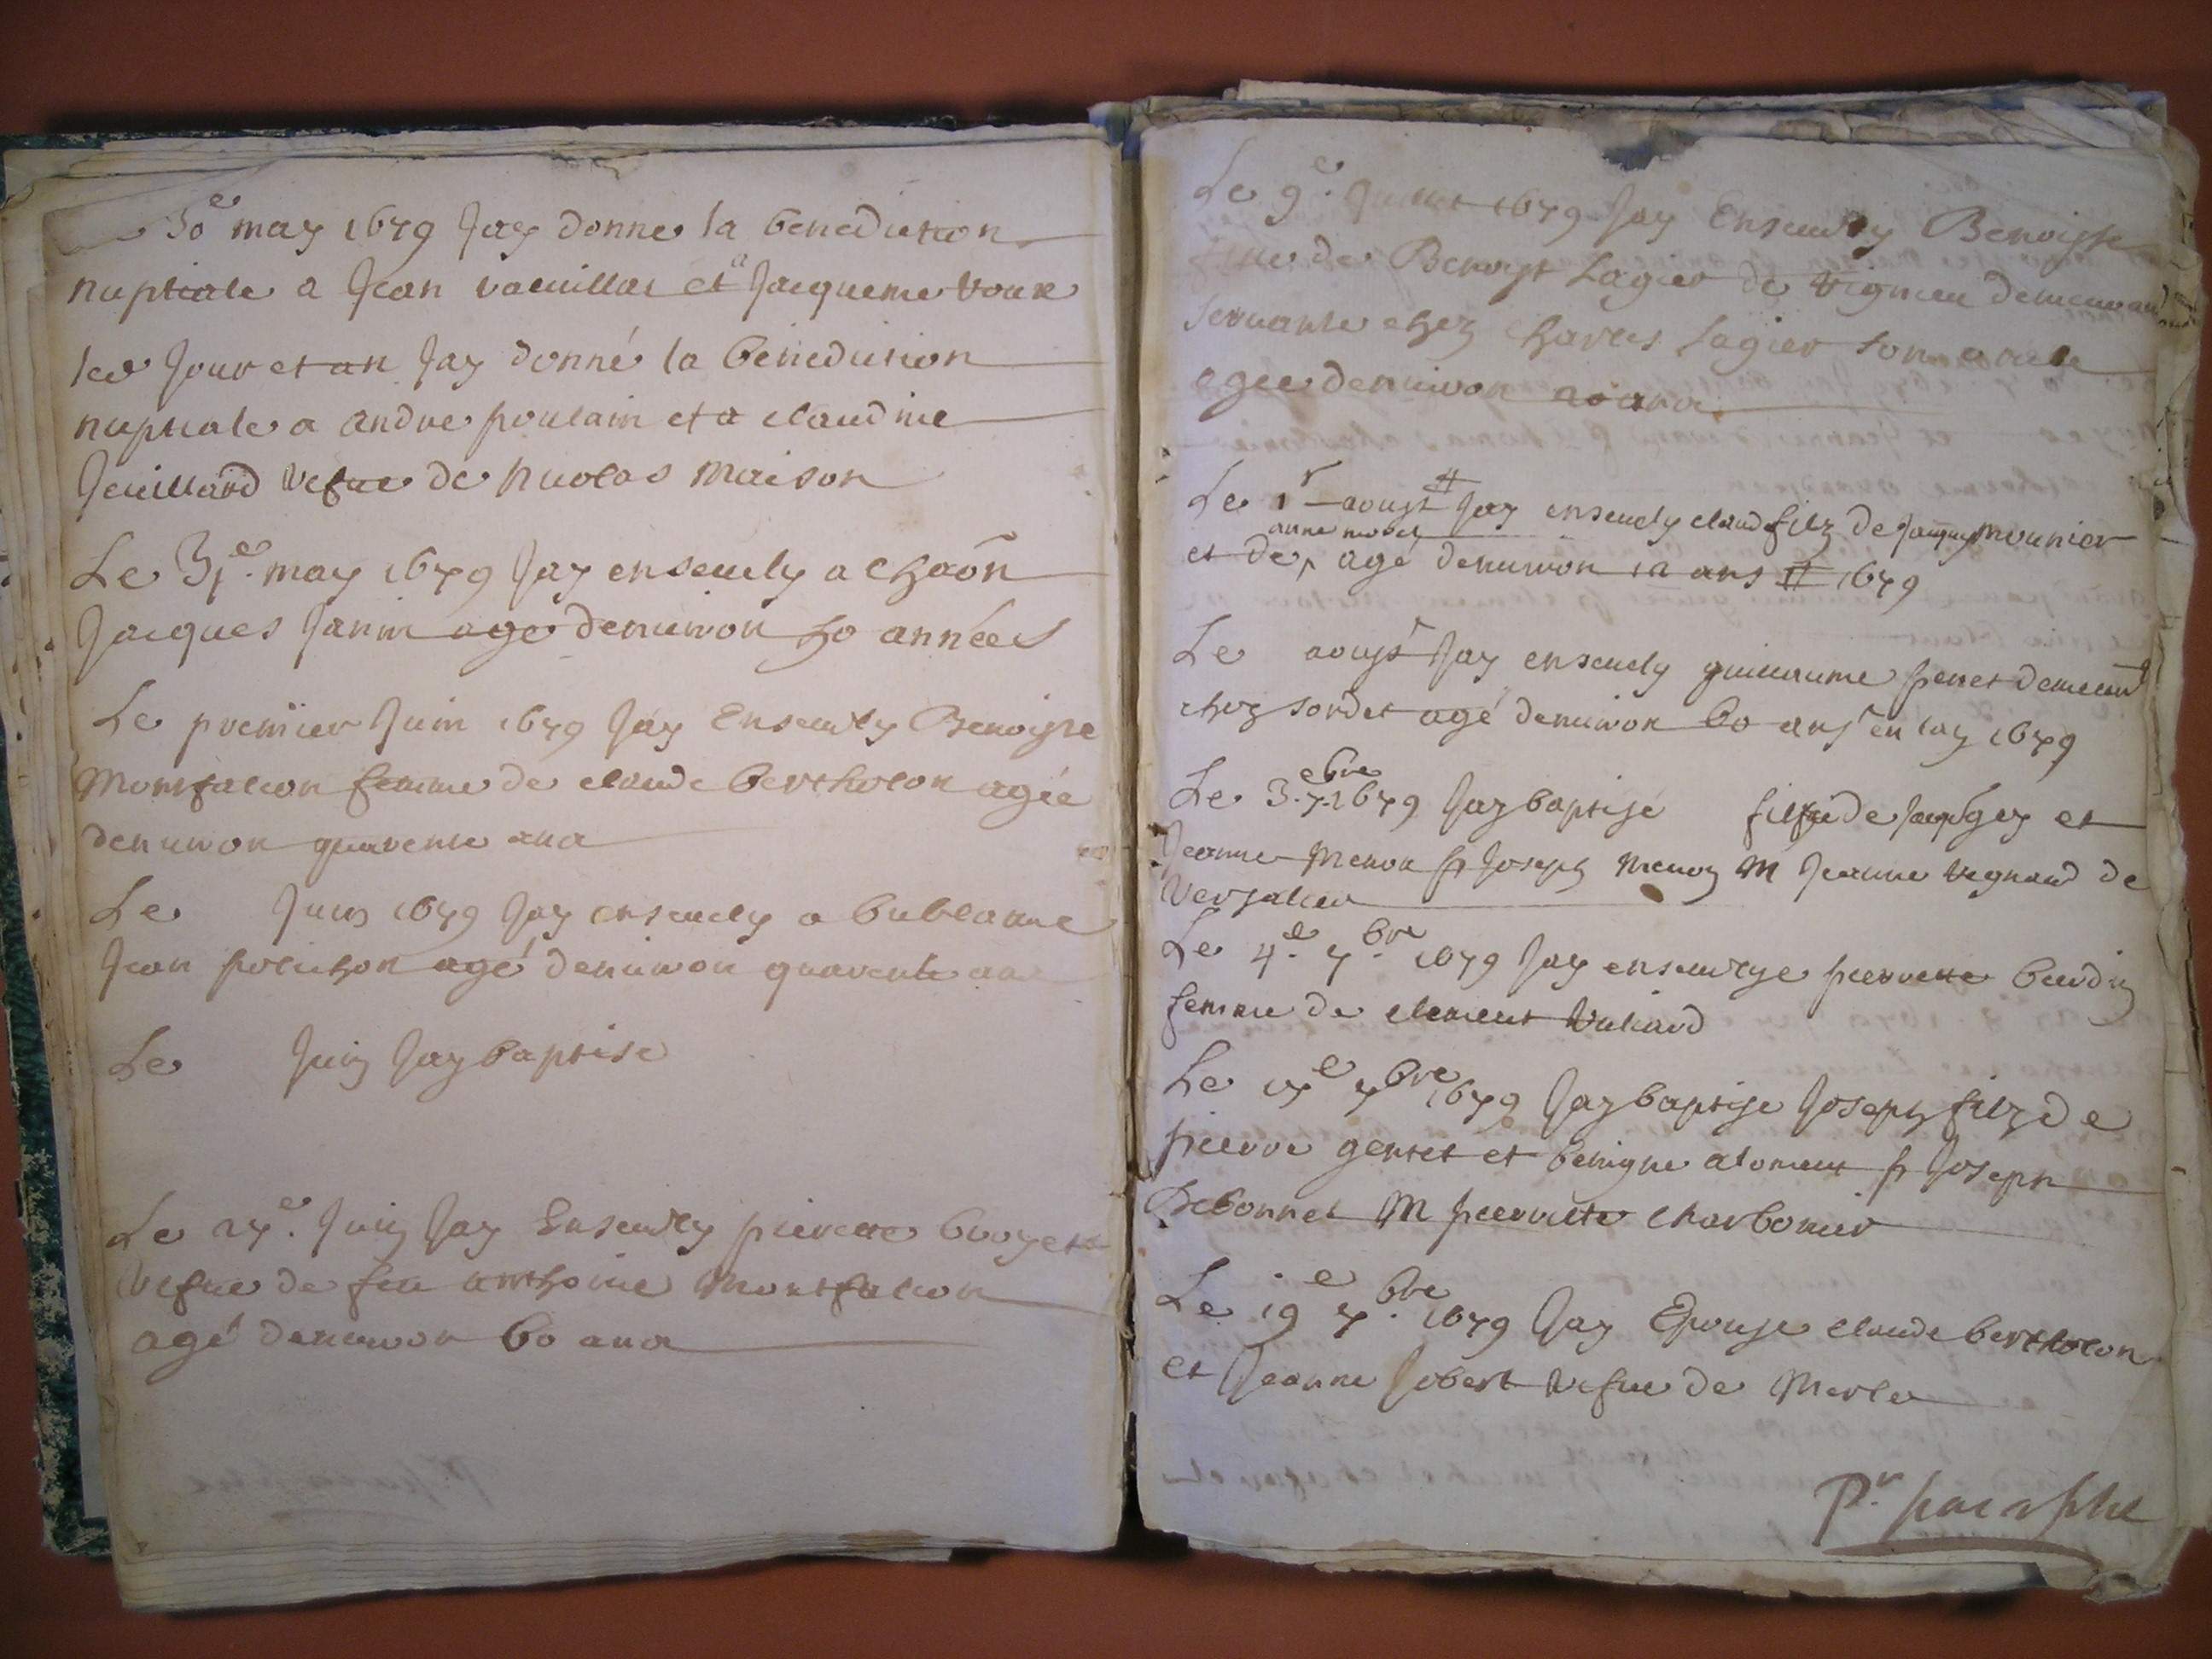 30e may 1679 Jay donne la benediction
nuptiale a Jean et a Jacqueme
led Jour et an Jay donné la benediction
nuptiale a andre poulain et a claudine
vefue de nicolas maison
Le 31e. may 1679 Jay enseuely a Chaōn
Jacques Janin agé denuiron 50 années
Le premier Juin 1679 Jay Enseuely Benoiste
Montfalcon femme de claude bertholon agée
denuiron quarente ans
Le Juin 1679 Jay enseuely a bublanne
Jean polichon agé denuiron quarente ans
Le Juin Jay baptise
Le 27e. Juin Jay Enseuely pierette
vefue de feu anthoine Montfalcon
agé denuiron 60 ans
Le 9e. Juillet 1679 Jay Enseuely Benoiste
fille de Benoist Lagier de vignieu demeurant
seruante chez Charles Lagier son oncle
agee denuiron 20 ans
Le 1r aoust # Jay enseuely claud filz de Jacques mounier
anne morel
et de ^ agé denuiron 12 ans # 1679
Le aoust Jay enseuely guillaume perret demeurt
chez sordet agé denuiron 60 ans en lan 1679
Le 3. 7.ebre 1679 Jay baptisé fille de gey et
Jeanne Menon p Joseph Menon M Jeanne vignand de
Versalieu
Le 4e. 7.bre 1679 Jay enseuelye pierrette
femme de clement
Le 17e 7bre 1679 Jay baptise Joseph filz de
pierre gentet et benigne p Joseph
Debonnet M pierrette charbonier
Le 19e 7.bre 1679 Jay Epouse claude bertholon
et Jeanne Jobert vefue de Merle
Pr. paraphe